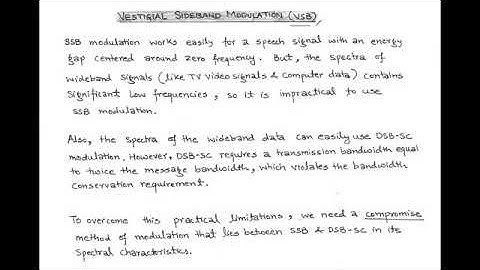 VESTIGIAL SIDEBAND MODULATION (VSB)
SSB modulation works easily for a speech signal with an energy
gap centered around zero frequency. But, the spectra of
wideband signals (like TV Video signals & Computer data) contains
significant Low frequencies, so it is impractical to use
SSB modulation.
Also, the spectra of the wideband data can easily use DSB-SC
modulation. However, DSB-SC requires a transmission bandwidth equal
to twice the message bandwidth, which violates the bandwidth
conservation requirement.
To overcome this practical limitations, we need a compromise
method of modulation that lies between SSB & DSB-SC in its
Spectral characteristics.